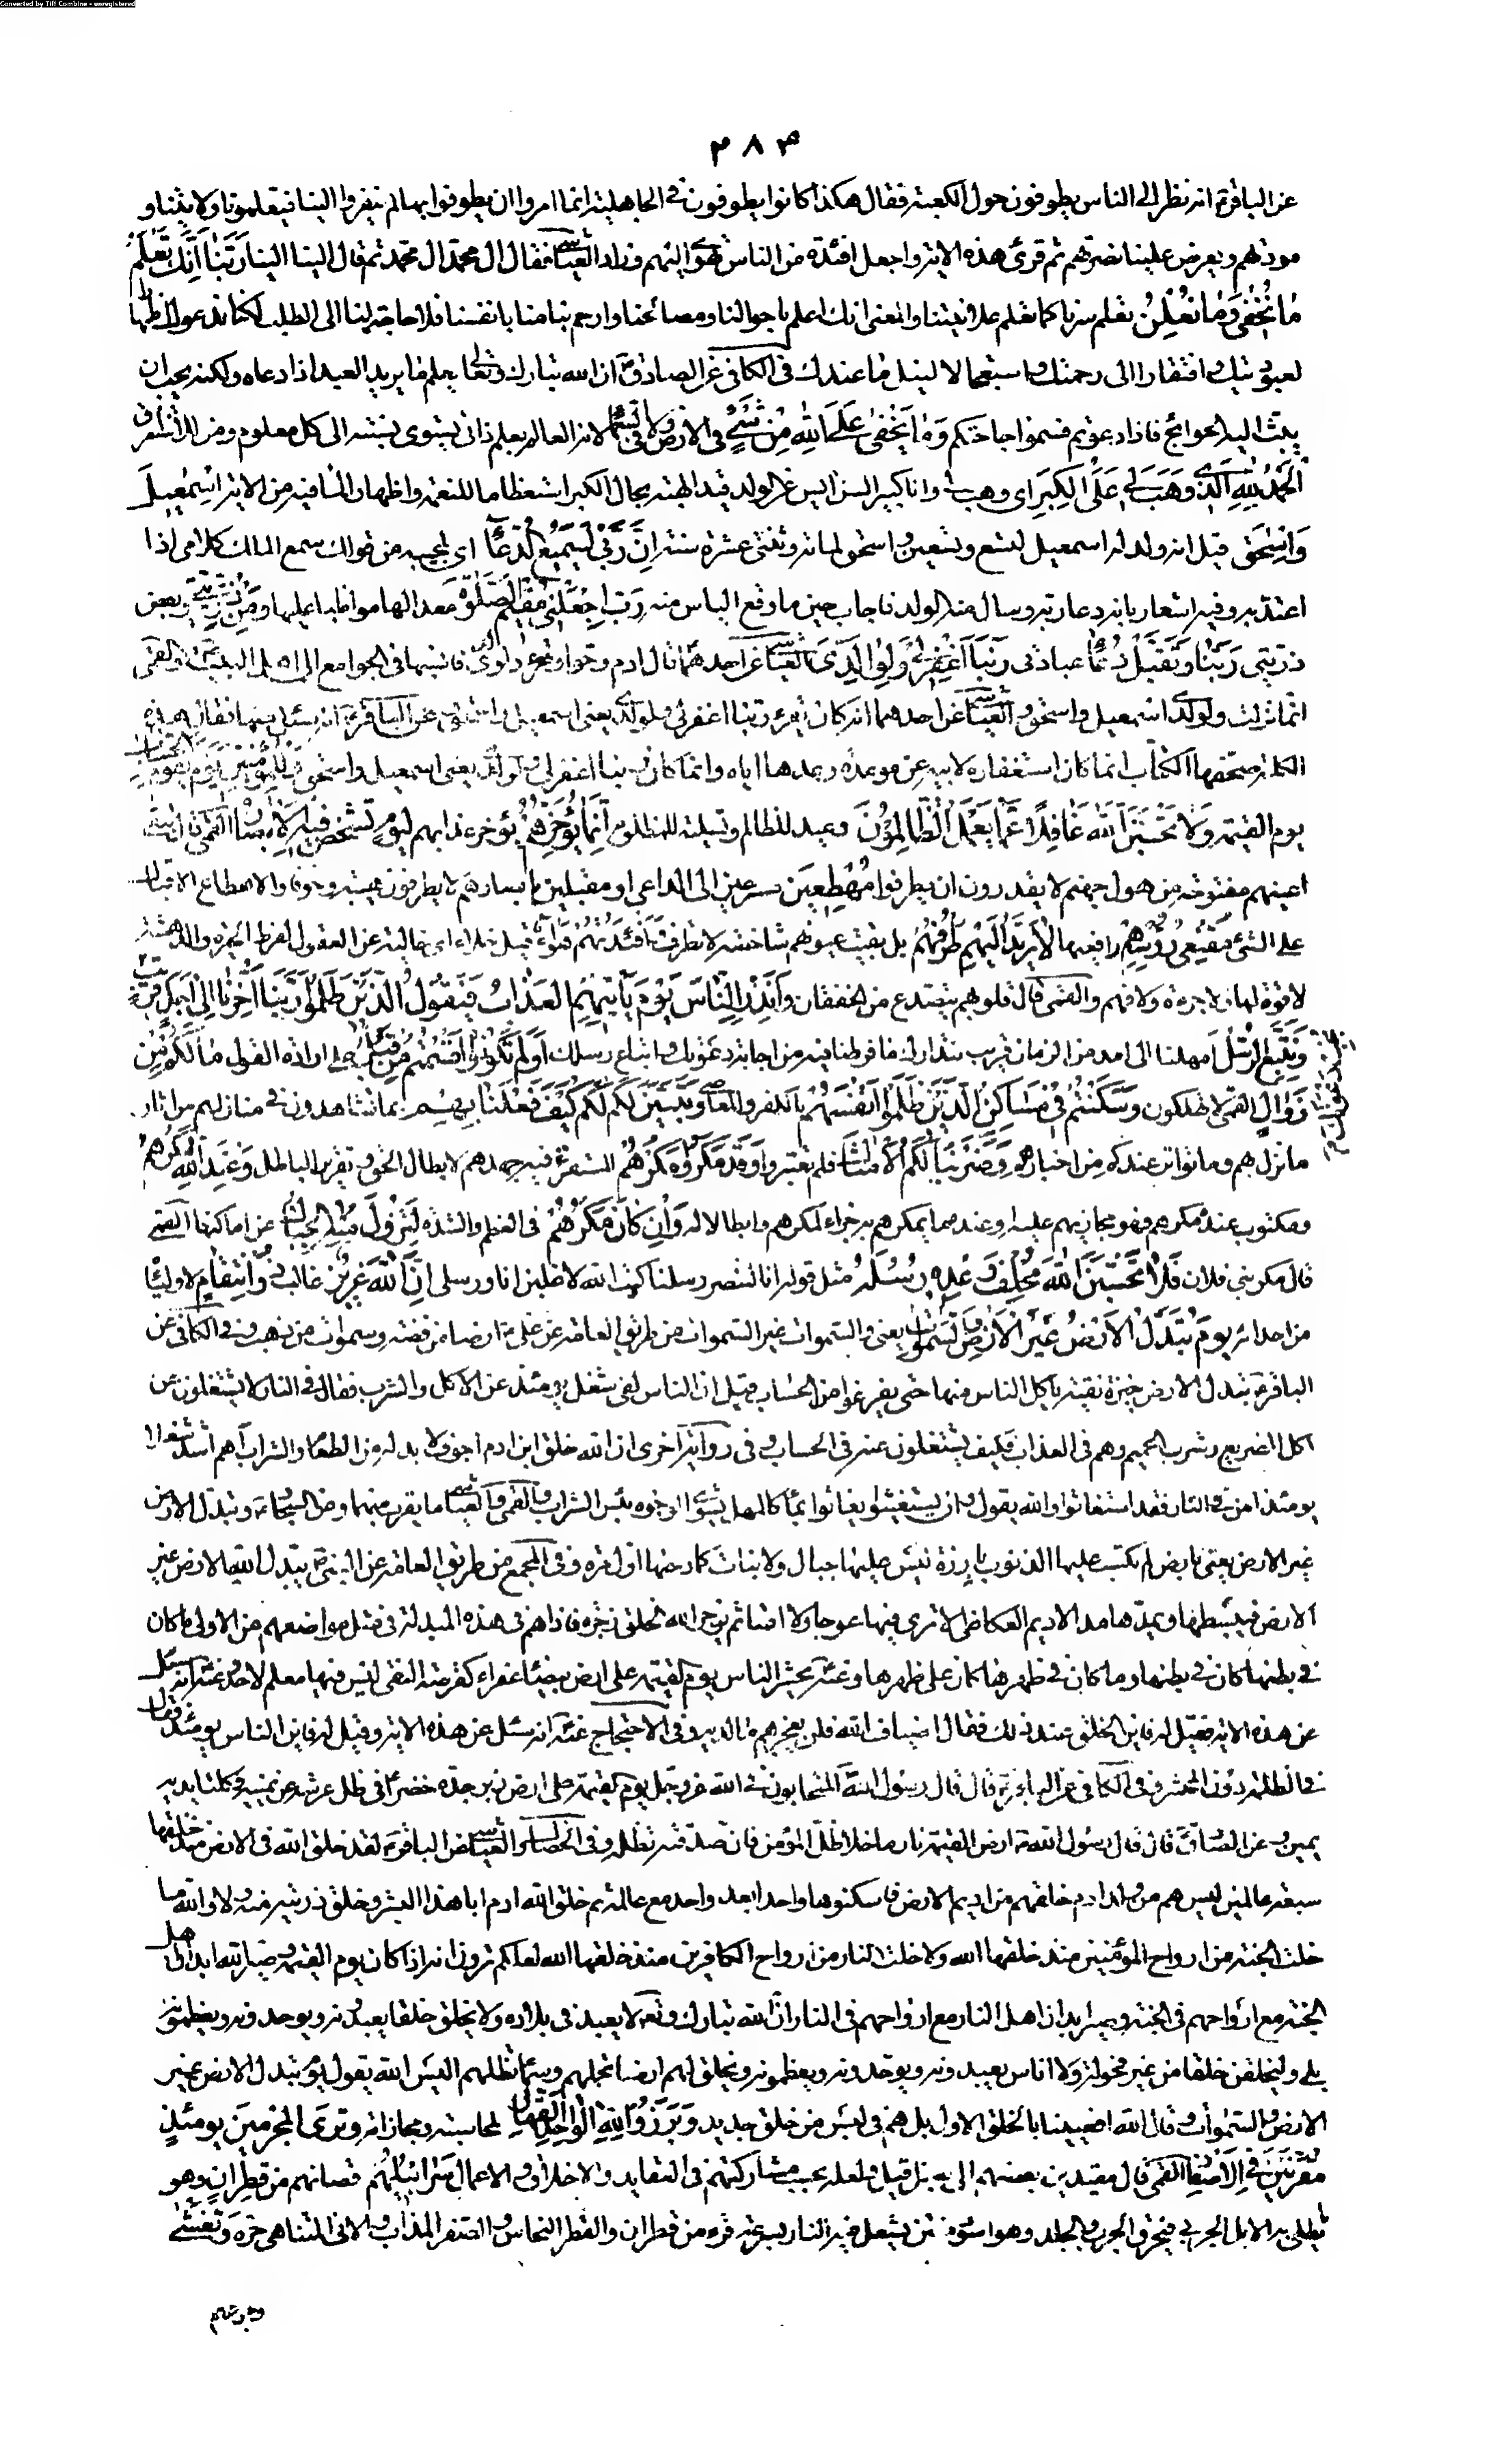 Converted by Tiff Combine - unregistered
٣٨٤
عن الباقر ع انه نظر الى الناس يطوفون حول الكعبة فقال هكذا كانوا يطوفون في الجاهلية انما امروا ان يطوفوا بها ثم ينفروا الينا فيعلمونا ولايتنا و
مودتهم ويعرض علينا نصرتهم ثم قرئ هذه الاية واجعل افئدة من الناس تهوى اليهم وزاد العياشي فقال ال محمد ال محمد ثم قال الينا الينا رَبَّنَا اِنَّكَ تَعْلَمُ
مَا نُخْفِي وَمَا نُعْلِنُ تعلم سرنا كما تعلم علانيتنا والمعنى انك اعلم باحوالنا ومصالحنا وارحم بنا منا بانفسنا فلا حاجة لنا الى الطلب لكنا ندعوك اظهارا
لعبوديتك وافتقارا الى رحمتك واستعجالا لنيل ما عندك في الكافي عن الصادق ع ان الله تبارك وتعالى يعلم ما يريد العبد اذا دعاه ولكنه يحب ان
يبث اليه الحوائج فاذا دعوتم فسموا حاجتكم وَمَا يَخْفَى عَلَى اللهِ مِنْ شَيْءٍ فِي الْاَرْضِ وَلَا فِي السَّمَاءِ لانه العالم بعلم ذاتي يستوي نسبته الى كل معلوم ومن للاستغراق
اَلْحَمْدُ لِلهِ الَّذِي وَهَبَ لِي عَلَى الْكِبَرِ اي وهب لي وانا كبير السن ايس عن الولد قيد الهبة بحال الكبر استعظاما للنعمة واظهارا لما فيه من الاية اِسْمٰعِيلَ
وَاِسْحٰقَ قيل انه ولد له اسمعيل لتسع وتسعين واسحق لمائة وثنتي عشرة سنة اِنَّ رَبِّي لَسَمِيعُ الدُّعَاءِ اي لمجيبه من قولك سمع الملك كلامي اذا
اعتد به وفيه اشعار بانه دعا ربه وسال منه الولد فاجاب حين ما وقع الياس منه رَبِّ اجْعَلْنِي مُقِيمَ الصَّلٰوةِ معدلا لها مواظبا عليها وَمِنْ ذُرِّيَّتِي وبعض
ذريتي رَبَّنَا وَتَقَبَّلْ دُعَاءِ عبادتي رَبَّنَا اغْفِرْ لِي وَلِوَالِدَيَّ العياشي عن احدهما قال ادم وحوا وقرئ ولولدي في الجوامع الى اهل البيت والقمي
انما نزلت ولولدي اسمعيل واسحق والعياشي عن احدهما انه كان يقرء ربنا اغفر لي ولولدي يعني اسمعيل واسحق وعن الباقر ع انه سئل عنها فقال هذه
الكلمة صحفها الكتاب انما كان استغفاره لابيه عن موعدة وعدها اياه وانما كان ربنا اغفر لي ولولدي يعني اسمعيل واسحق وَلِلْمُؤْمِنِينَ يَوْمَ يَقُومُ الْحِسَابُ
يوم القيمة وَلَا تَحْسَبَنَّ اللهَ غَافِلًا عَمَّا يَعْمَلُ الظَّالِمُونَ وعيد للظالم وتسلية للمظلوم اِنَّمَا يُؤَخِّرُهُمْ يؤخر عذابهم لِيَوْمٍ تَشْخَصُ فِيهِ الْاَبْصَارُ القمي قال تبقى
اعينهم مفتوحة من هول جهنم لا يقدرون ان يطرفوا مُهْطِعِينَ مسرعين الى الداعي او مقبلين بابصارهم لا يطرفون هيبة وخوفا والاهطاع الاقبال
على الشئ مُقْنِعِي رُؤُسِهِمْ رافعيها لَا يَرْتَدُّ اِلَيْهِمْ طَرْفُهُمْ بل بقيت عيونهم شاخصة لا تطرف وَاَفْئِدَتُهُمْ هَوَاءٌ قيل خلاء اي خالية عن العقول لفرط الحيرة والدهشة
لا قوة لها ولا جرءة ولا فهم والقمي قال قلوبهم يتصدع من الخفقان وَاَنْذِرِ النَّاسَ يَوْمَ يَأْتِيهِمُ الْعَذَابُ فَيَقُولُ الَّذِينَ ظَلَمُوا رَبَّنَا اَخِّرْنَا اِلَى اَجَلٍ قَرِيبٍ
نُجِبْ دَعْوَتَكَ
وَنَتَّبِعِ الرُّسُلَ امهلنا الى امد من الزمان قريب نتدارك ما فرطنا فيه من اجابة دعوتك واتباع رسلك اَوَلَمْ تَكُونُوا اَقْسَمْتُمْ مِنْ قَبْلُ على ارادة القول مَا لَكُمْ مِنْ
زَوَالٍ القمي لا تهلكون وَسَكَنْتُمْ فِي مَسَاكِنِ الَّذِينَ ظَلَمُوا اَنْفُسَهُمْ بالكفر والمعاصي وَتَبَيَّنَ لَكُمْ كَيْفَ فَعَلْنَا بِهِمْ بما تشاهدون في منازلهم من اثار
ما نزل بهم وما تواتر عندكم من اخبارهم وَضَرَبْنَا لَكُمُ الْاَمْثَالَ فلم تعتبروا وَقَدْ مَكَرُوا مَكْرَهُمْ المستفرغ فيه جهدهم لابطال الحق وتقرير الباطل وَعِنْدَ اللهِ مَكْرُهُمْ
ومكتوب عنده مكرهم فهو مجازيهم عليه او عنده ما يمكرهم به جزاء لمكرهم وابطالا له وَاِنْ كَانَ مَكْرُهُمْ في العظم والشدة لِتَزُولَ مِنْهُ الْجِبَالُ عن اماكنها القمي
قال مكر بني فلان فَلَا تَحْسَبَنَّ اللهَ مُخْلِفَ وَعْدِهِ رُسُلَهُ مثل قوله انا لننصر رسلنا كتب الله لاغلبن انا ورسلي اِنَّ اللهَ عَزِيزٌ غالب ذُو انْتِقَامٍ لاوليائه
من اعدائه يَوْمَ تُبَدَّلُ الْاَرْضُ غَيْرَ الْاَرْضِ وَالسَّمٰوَاتُ يعني والسموات غير السموات من طريق العامة عن علي ع ارضا من فضة وسموات من ذهب وفي الكافي عن
الباقر ع تبدل الارض خبزة نقية ياكل الناس منها حتى يفرغوا من الحساب قيل ان الناس لفي شغل يومئذ عن الاكل والشرب فقال في النار لا يشتغلون عن
اكل الضريع وشرب الحميم وهم في العذاب فكيف يشتغلون عنه في الحساب وفي رواية اخرى ان الله خلق ابن ادم اجوف ولا بد له من الطعام والشراب اهم اشد شغلا
يومئذ ام من في النار فقد استغاثوا والله يقول وان يستغيثوا يغاثوا بماء كالمهل يشوي الوجوه بئس الشراب والقمي والعياشي ما يقرب منهما وعن السجاد ع وتبدل الارض
غير الارض يعني بارض لم يكتسب عليها الذنوب بارزة ليس عليها جبال ولا نبات كما دحيها اول مرة وفي المجمع من طريق العامة عن النبي ص يبدل الله الارض غير
الارض فيبسطها ويمدها مد الاديم العكاظي لا ترى فيها عوجا ولا امتا ثم يزجر الله الخلق زجرة فاذا هم في هذه المبدلة في مثل مواضعهم من الاولى ما كان
في بطنها كان في بطنها وما كان في ظهرها كان على ظهرها وعنه ص يحشر الناس يوم القيمة على ارض بيضاء عفراء كقرصة النقي ليس فيها معلم لاحد وعنه انه سئل
عن هذه الاية فقيل له فاين الخلق عند ذلك فقال اضياف الله فلن يعجزهم ما لديه وفي الاحتجاج عنه ص انه سئل عن هذه الاية وقيل له فاين الناس يومئذ فقال
في الظلمة دون المحشر وفي الكافي عن الباقر ع قال قال رسول الله ص المتحابون في الله عز وجل يوم القيمة على ارض زبرجدة خضراء في ظل عرشه عن يمينه وكلتا يديه
يمين وعن الصادق ع قال قال رسول الله ص ارض القيمة نار ما خلا ظل المؤمن فان صدقته تظله وفي الخصال والعياشي عن الباقر ع لقد خلق الله في الارض منذ خلقها
سبعة عالمين ليس هم من ولد ادم خلقهم من اديم الارض فاسكنوها واحدا بعد واحد مع عالمه ثم خلق الله ادم ابا هذا البشر وخلق ذريته منه ولا والله ما
خلت الجنة من ارواح المؤمنين منذ خلقها الله ولا خلت النار من ارواح الكافرين منذ خلقها الله لعلكم ترون انه اذا كان يوم القيمة وصير الله ابدان اهل
الجنة مع ارواحهم في الجنة وصير ابدان اهل النار مع ارواحهم في النار ان الله تبارك وتعالى لا يعبد في بلاده ولا يخلق خلقا يعبدونه ويوحدونه ويعظمونه
بلى وليخلقن خلقا من غير فحولة ولا اناث يعبدونه ويوحدونه ويعظمونه ويخلق لهم ارضا تحملهم وسماء تظلهم اليس الله يقول يوم تبدل الارض غير
الارض والسموات وقال الله افعيينا بالخلق الاول بل هم في لبس من خلق جديد وَبَرَزُوا لِلهِ الْوَاحِدِ الْقَهَّارِ لمحاسبته ومجازاته وَتَرَى الْمُجْرِمِينَ يَوْمَئِذٍ
مُقَرَّنِينَ فِي الْاَصْفَادِ القمي قال مقيدين بعضهم الى بعض قيل ولعله بحسب مشاركتهم في العقايد والاخلاق والاعمال سَرَابِيلُهُمْ قمصانهم مِنْ قَطِرَانٍ وهو
يطلى به الابل الجربى فيحرق الجرب والجلد وهو اسود منتن يشتعل فيه النار بسرعة وقرء من قطران والقطر النحاس والصفر المذاب والاني المتناهي حره وَتَغْشَى
وجوههم